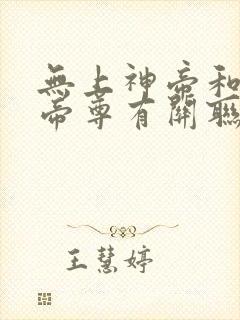 無上神帝和
帝尊有關聯
王慧婷